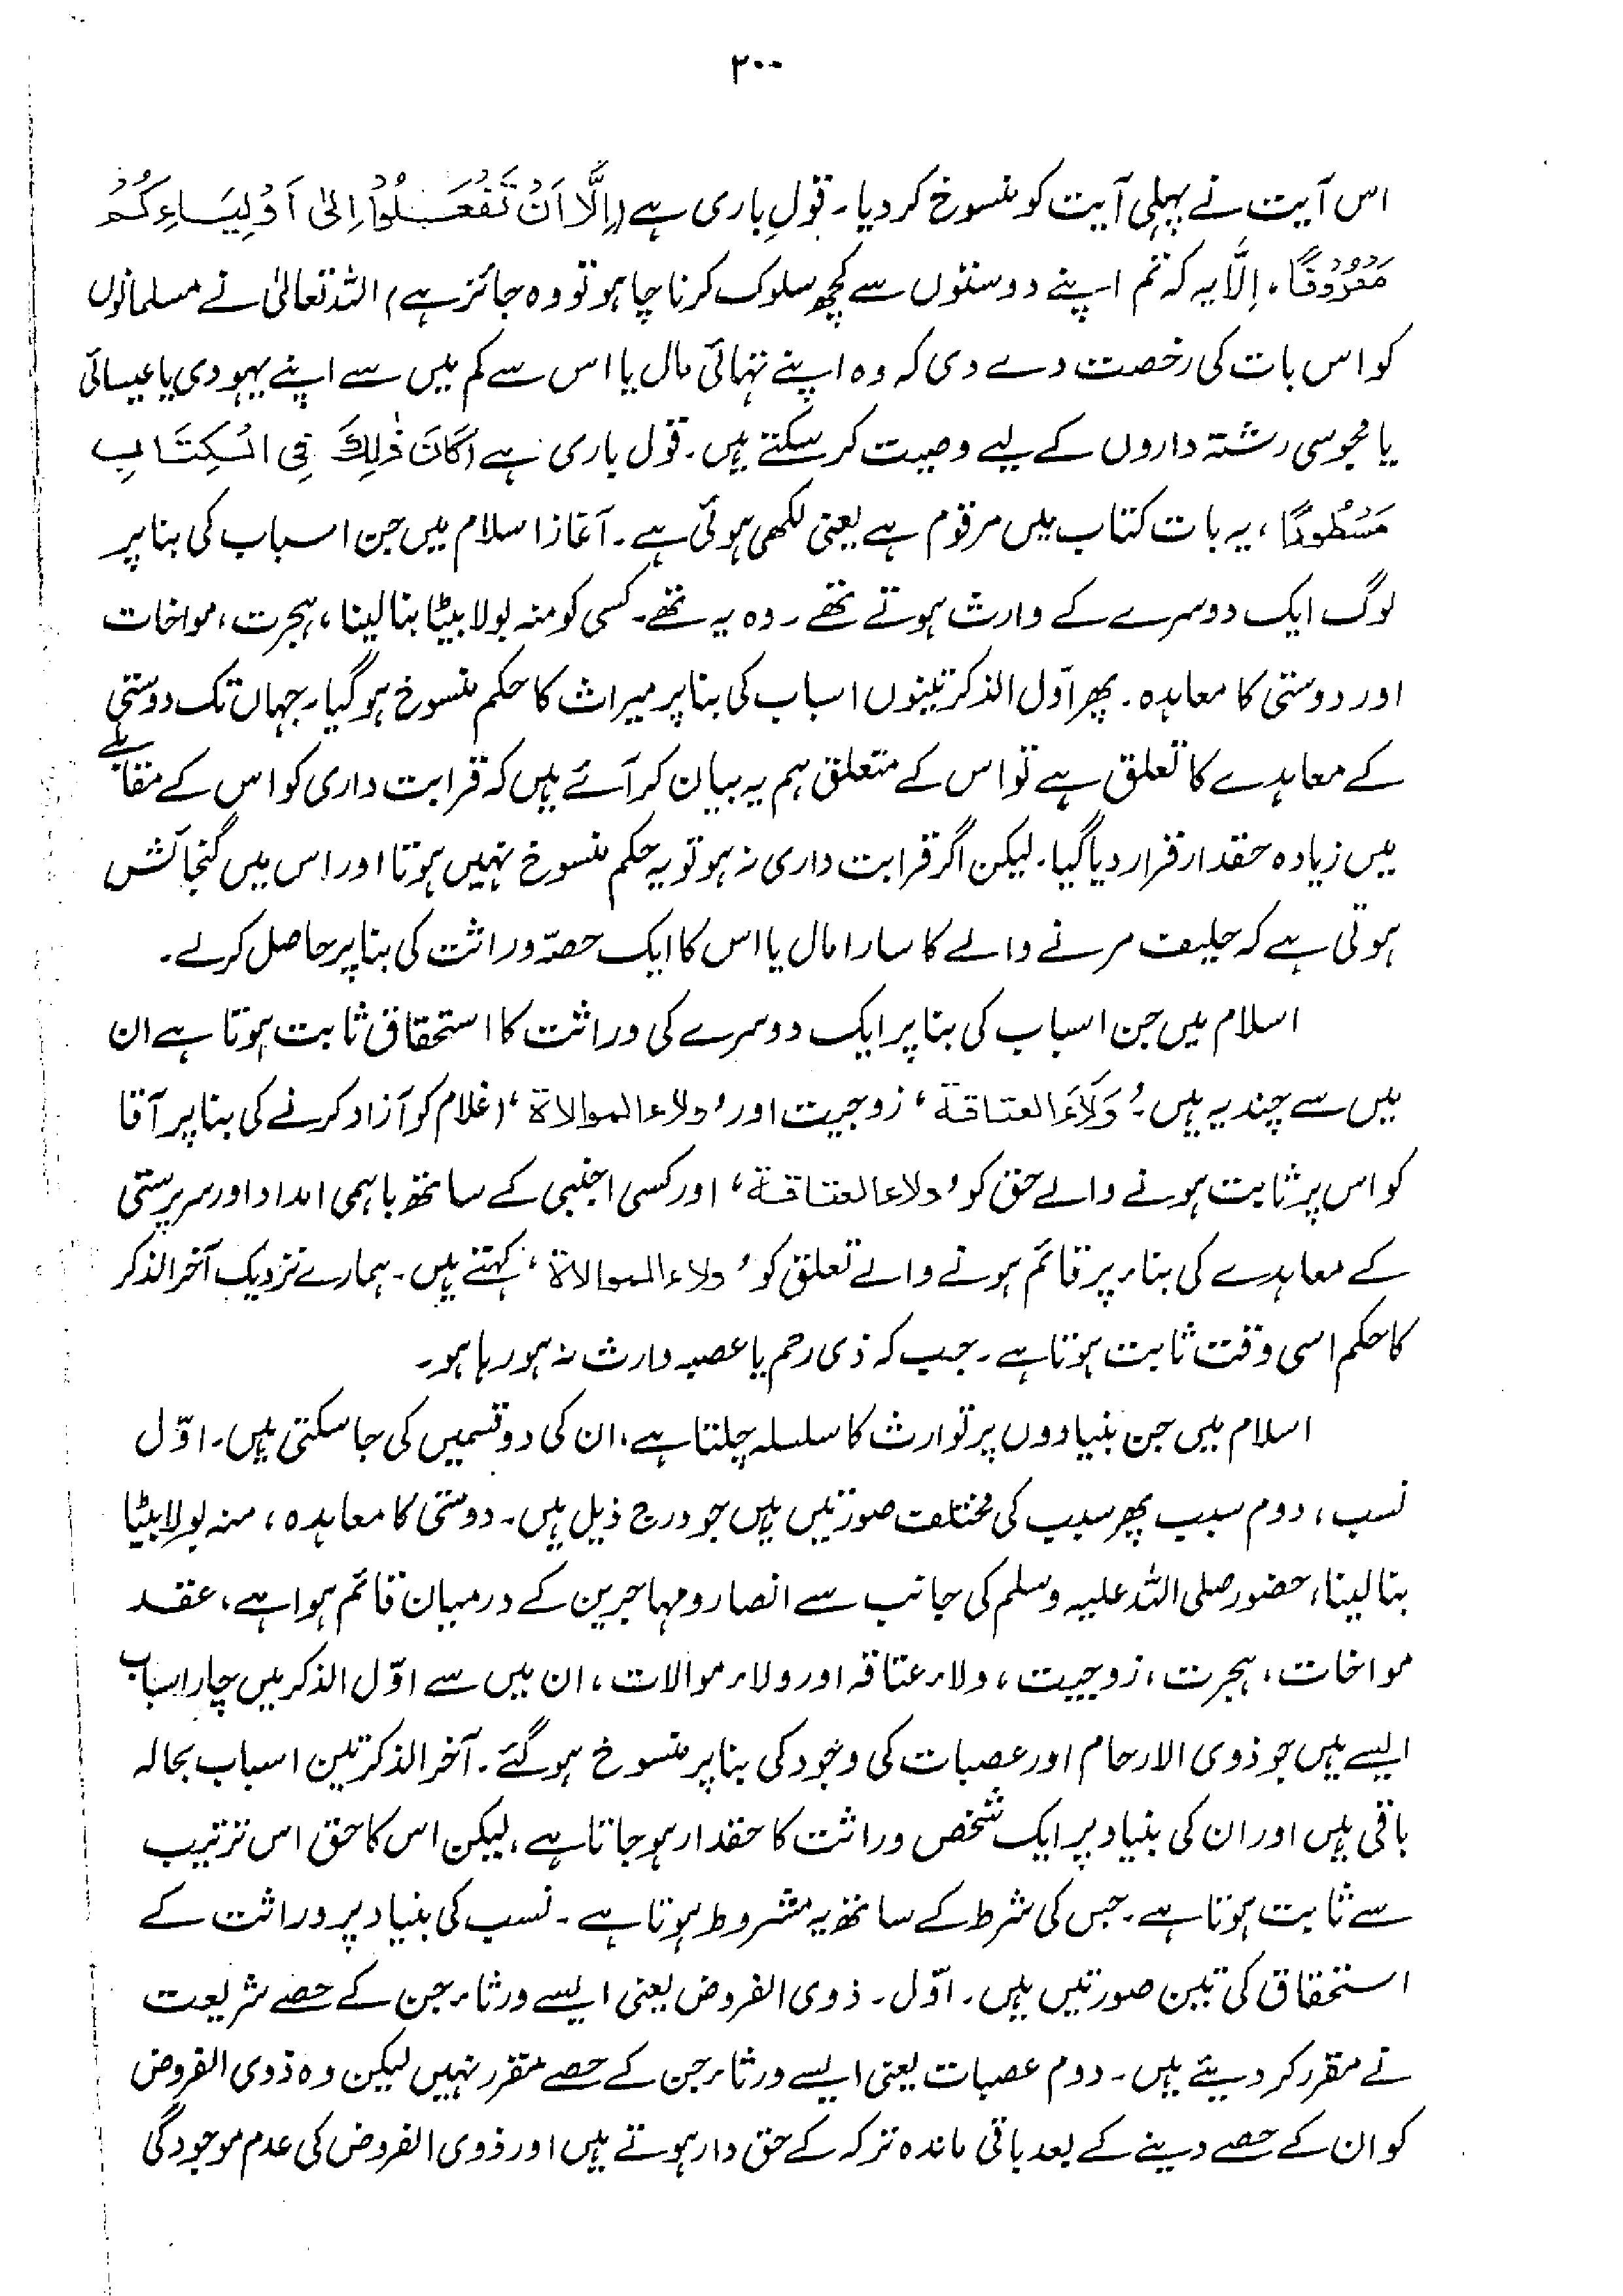 ۳۰۰
اس آیت نے پہلی آیت کو منسوخ کر دیا۔ قولِ باری ہے (اِلَّا اَنْ تَفْعَلُوْا اِلٰی اَوْلِیَاءِکُمْ
مَعْرُوْفًا، اِلَّا یہ کہ تم اپنے دوستوں سے کچھ سلوک کرنا چاہو تو وہ جائز ہے) اللہ تعالیٰ نے مسلمانوں
کو اس بات کی رخصت دے دی کہ وہ اپنے تہائی مال یا اس سے کم میں سے اپنے یہودی یا عیسائی
یا مجوسی رشتہ داروں کے لیے وصیت کر سکتے ہیں۔ قول باری ہے (کَانَ ذٰلِکَ فِی الْکِتَابِ
مَسْطُوْرًا، یہ بات کتاب میں مرقوم ہے یعنی لکھی ہوئی ہے۔ آغاز اسلام میں جن اسباب کی بنا پر
لوگ ایک دوسرے کے وارث ہوتے تھے۔ وہ یہ تھے۔ کسی کو منہ بولا بیٹا بنا لینا، ہجرت، مواخات
اور دوستی کا معاہدہ۔ پھر اوّل الذکر تینوں اسباب کی بنا پر میراث کا حکم منسوخ ہو گیا۔ جہاں تک دوستی
کے معاہدے کا تعلق ہے تو اس کے متعلق ہم یہ بیان کر آئے ہیں کہ قرابت داری کو اس کے مقابلے
میں زیادہ حقدار قرار دیا گیا۔ لیکن اگر قرابت داری نہ ہو تو یہ حکم منسوخ نہیں ہوتا اور اس میں گنجائش
ہوتی ہے کہ حلیف مرنے والے کا سارا مال یا اس کا ایک حصّہ وراثت کی بنا پر حاصل کرلے۔
اسلام میں جن اسباب کی بنا پر ایک دوسرے کی وراثت کا استحقاق ثابت ہوتا ہے ان
میں سے چند یہ ہیں۔ ’وَلَاءَ العتاقة‘ زوجیت اور ’ولاء الموالاة‘ (غلام کو آزاد کرنے کی بنا پر آقا
کو اس پر ثابت ہونے والے حق کو ’ولاء العتاقة‘ اور کسی اجنبی کے ساتھ باہمی امداد اور سرپرستی
کے معاہدے کی بناء پر قائم ہونے والے تعلق کو ’ولاء الموالاة‘ کہتے ہیں۔ ہمارے نزدیک آخر الذکر
کا حکم اسی وقت ثابت ہوتا ہے۔ جب کہ ذی رحم یا عصبہ وارث نہ ہو رہا ہو۔
اسلام میں جن بنیادوں پر توارث کا سلسلہ چلتا ہے، ان کی دو قسمیں کی جا سکتی ہیں۔ اوّل
نسب، دوم سبب پھر سبب کی مختلف صورتیں ہیں جو درج ذیل ہیں۔ دوستی کا معاہدہ، منہ بولا بیٹا
بنا لینا، حضور صلی اللہ علیہ وسلم کی جانب سے انصار و مہاجرین کے درمیان قائم ہوا ہے، عقد
مواخات، ہجرت، زوجیت، ولاء عتاقہ اور ولاء موالات، ان میں سے اوّل الذکر میں چار اسباب
ایسے ہیں جو ذوی الارحام اور عصبات کی وجود کی بنا پر منسوخ ہو گئے۔ آخر الذکر تین اسباب بحالہ
باقی ہیں اور ان کی بنیاد پر ایک شخص وراثت کا حقدار ہو جاتا ہے، لیکن اس کا حق اس ترتیب
سے ثابت ہوتا ہے۔ جس کی شرط کے ساتھ یہ مشروط ہوتا ہے۔ نسب کی بنیاد پر وراثت کے
استحقاق کی تین صورتیں ہیں۔ اوّل۔ ذوی الفروض یعنی ایسے ورثاء جن کے حصے شریعت
نے مقرر کر دیئے ہیں۔ دوم عصبات یعنی ایسے ورثاء جن کے حصے مقرر نہیں لیکن وہ ذوی الفروض
کو ان کے حصے دینے کے بعد باقی ماندہ ترکہ کے حق دار ہوتے ہیں اور ذوی الفروض کی عدم موجودگی